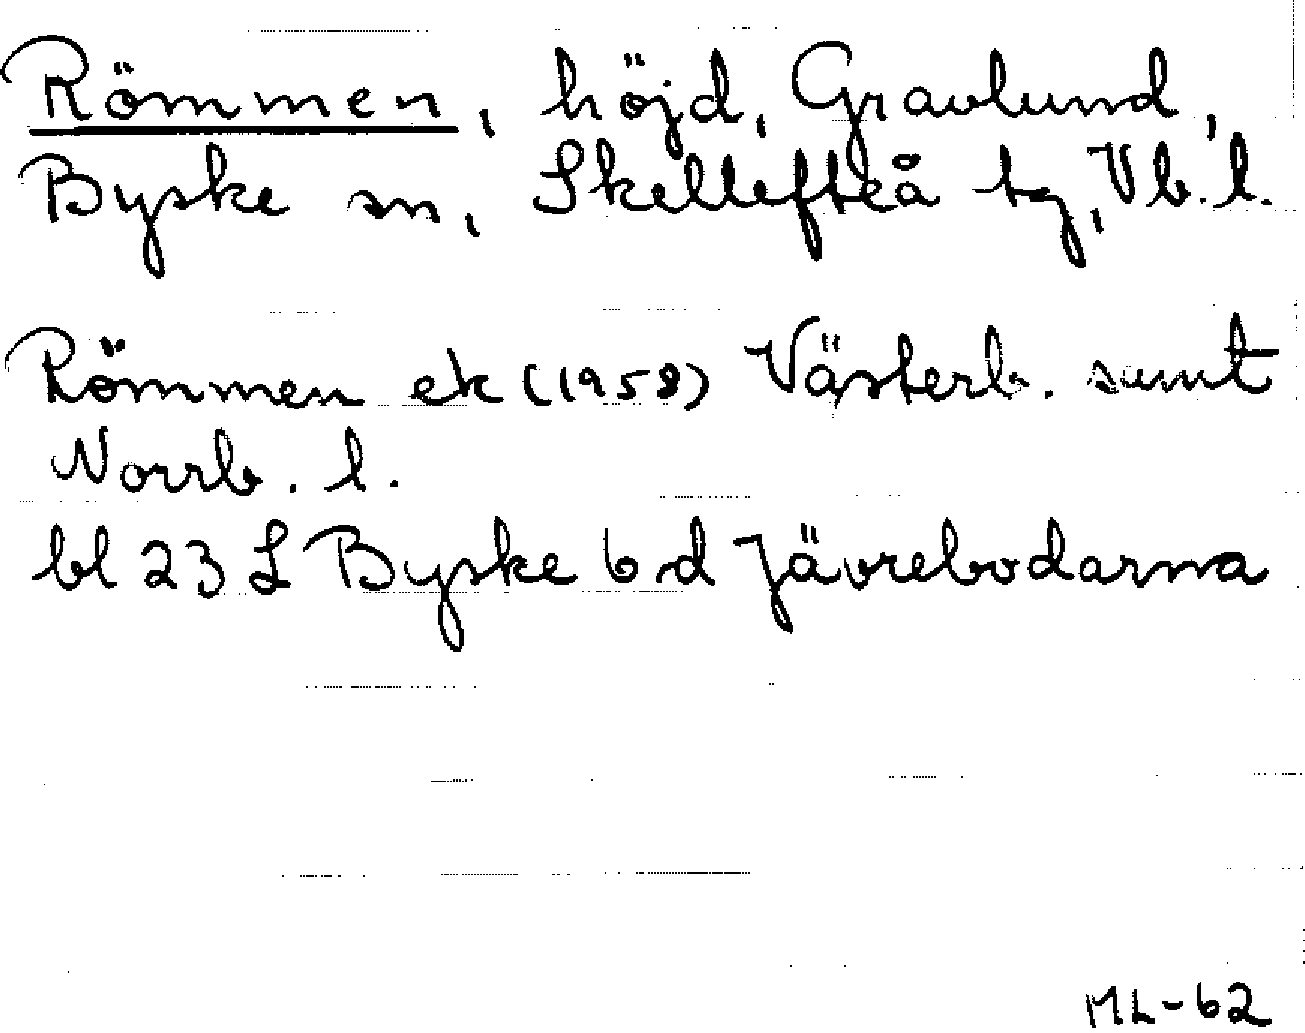 Römmen, höjd, Gravlund,
Byske sn, Skellefteå tg, Vb.l.
Römmen ek (1958) Västerb. samt
Norrb. l.
bl 23 L Byske 6 d Jävrebodarna
ML-62